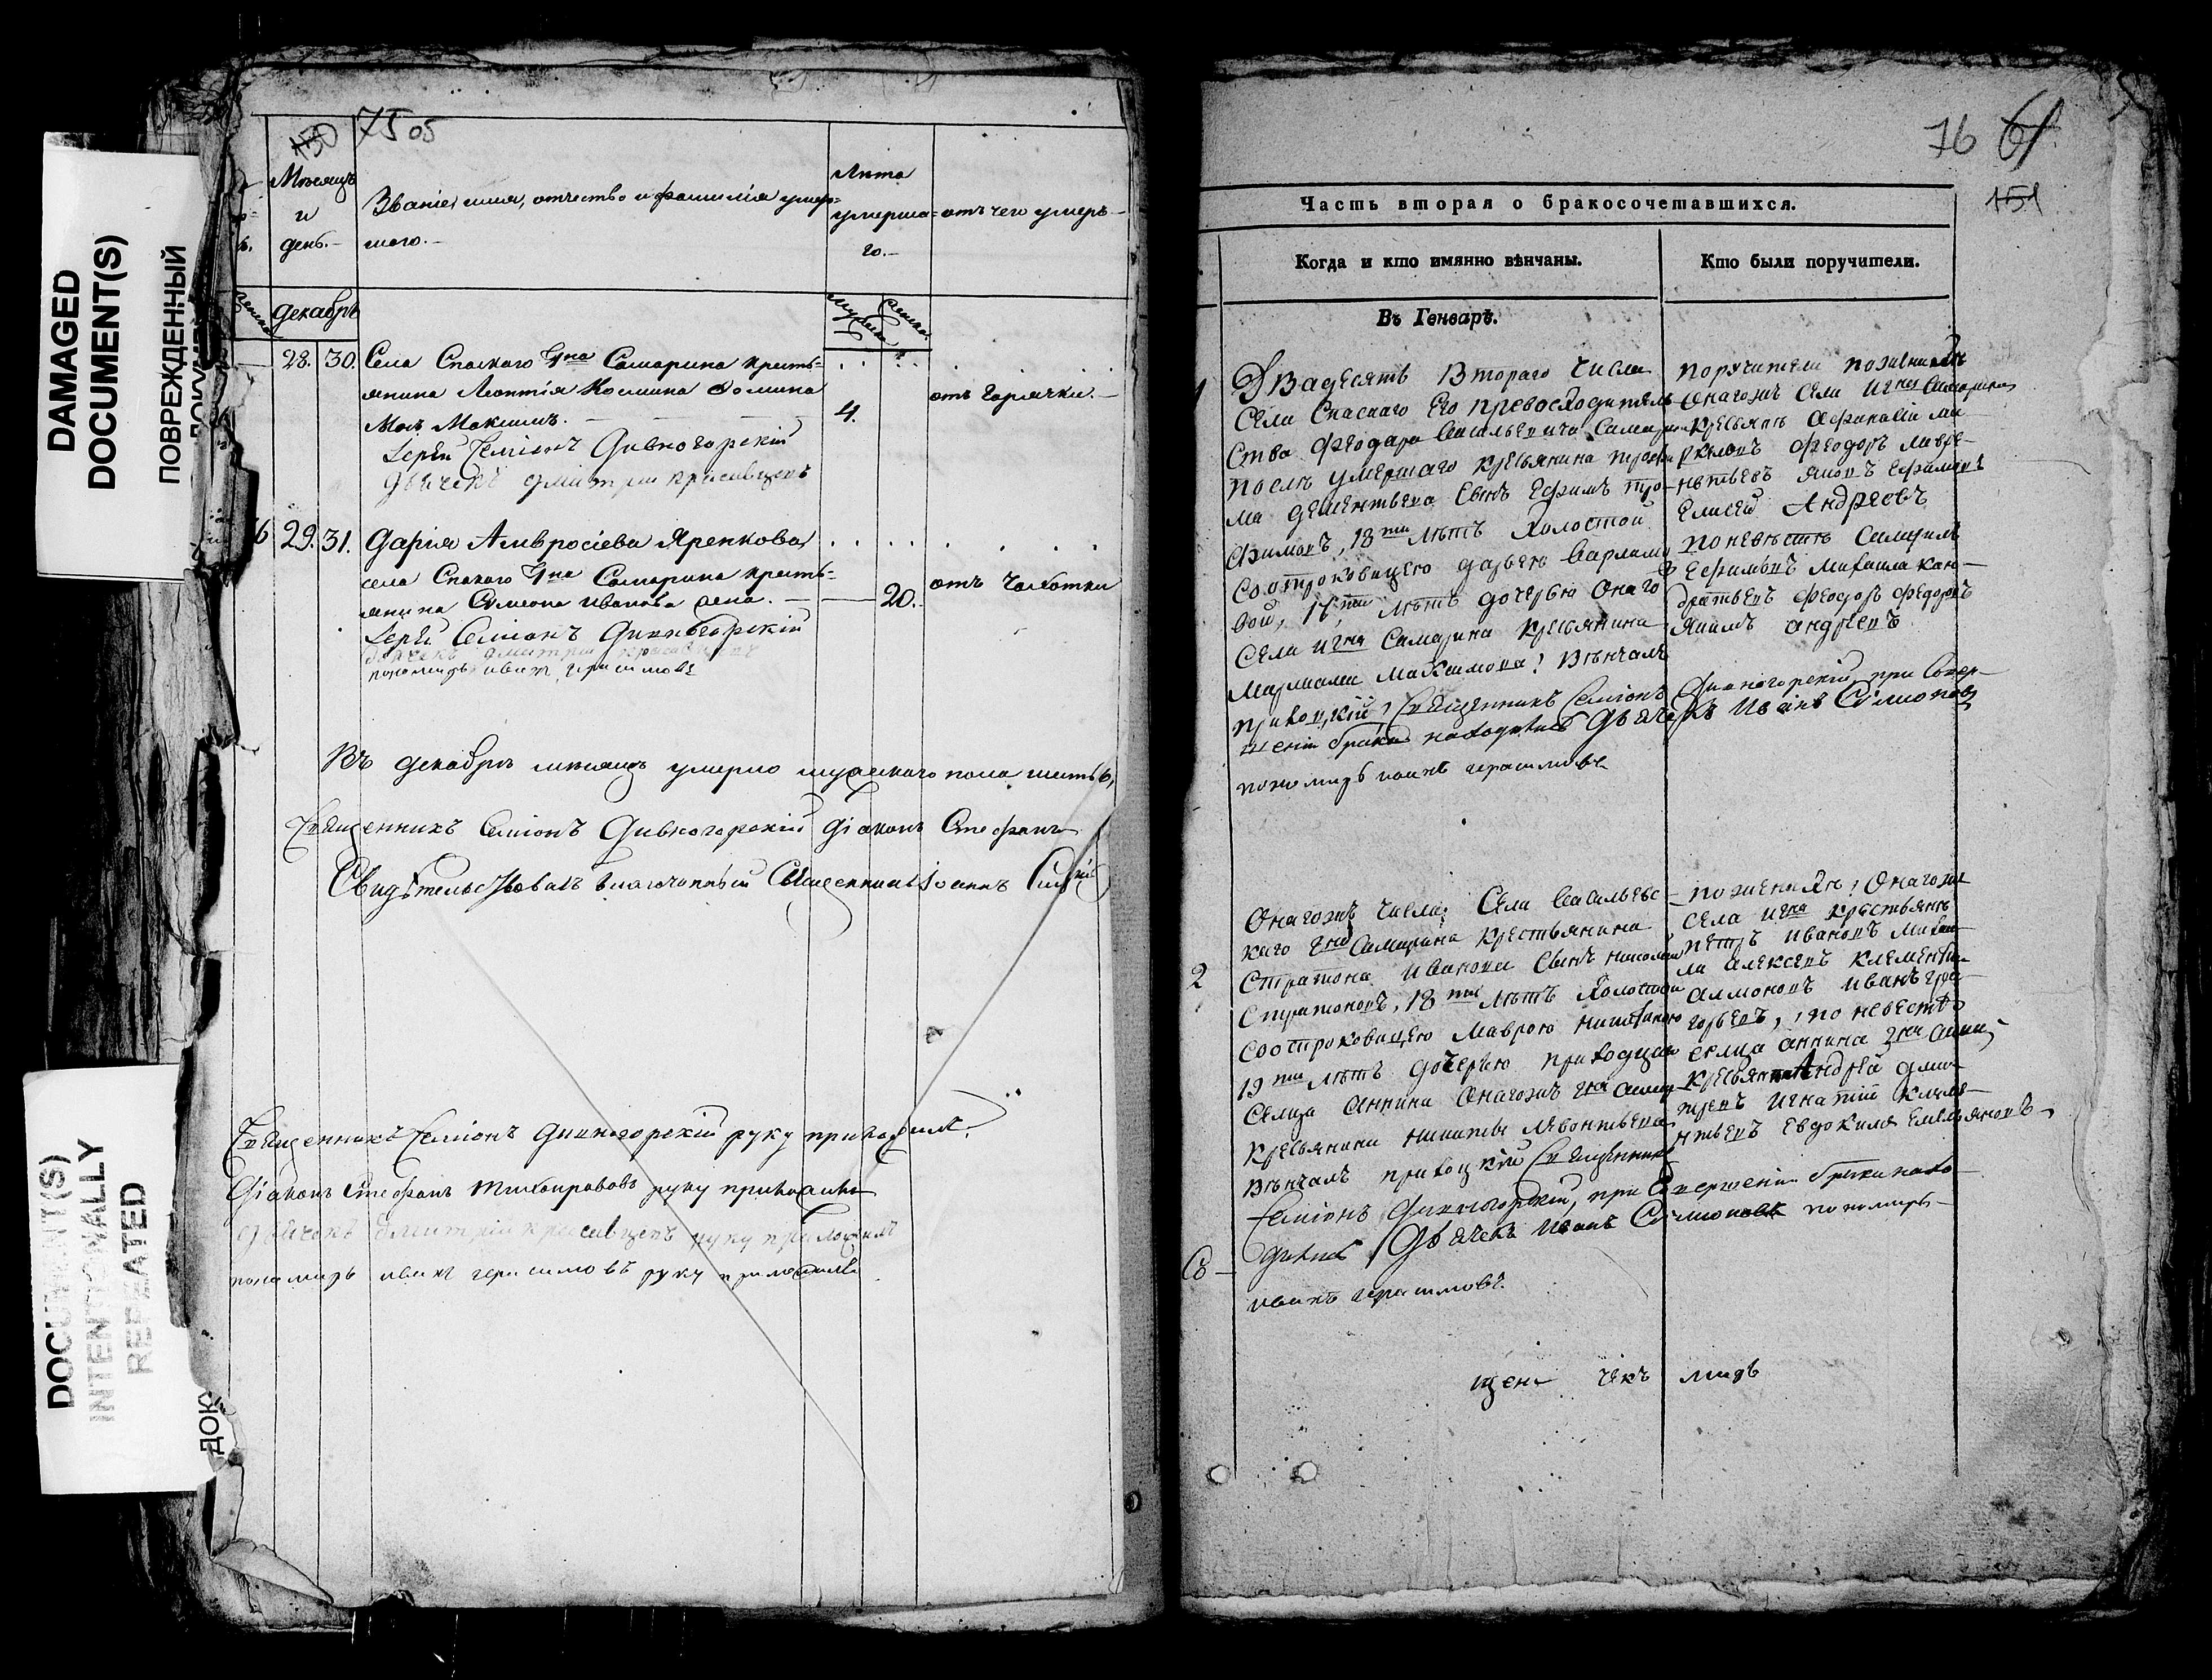 DAMAGED
DOCUMENT(S)
ПОВРЕЖДЕННЫЙ
DOCUMENT(S)
INTENTIONALLY
REPEATED
ДОК
150 75 об
Мѣсяцъ
и
день.
Званіе, имя, отчество и фамилія умер=
шаго.
Лѣта
умерша=
го.
отъ чего умеръ
декабрь
28. 30. Села Спаскаго Гна Самарина кресть=
янина Леонтія Космина Фомина
сынъ Максимъ. 4. отъ горячки.
Іерей Семіонъ Дивногорскій
Дьячекъ дмитрій красивцевъ
6 29. 31. Дарія Амвросіева Яренкова
села Спаскаго Гна Самарина кресть=
янина Симеона Иванова жена. 20. отъ чахотки
Іерей Семіонъ Дивногорскій
дьячекъ дмитрій красивцевъ
пономарь иванъ герасимовъ
Въ декабрѣ мѣсяцѣ умерло мужскаго пола шесть 6,
Священникъ Семіонъ Дивногорскій діаконъ Стефанъ
Свидѣтельствовалъ благочинный Священникъ Іоаннъ
Священникъ Семіонъ Дивногорскій руку приложилъ.
Діаконъ Стефанъ Тихонравовъ руку приложилъ
дьячекъ дмитрій красивцевъ руку приложилъ
пономарь иванъ герасимовъ руку приложилъ
76 61
151
Часть вторая о бракосочетавшихся.
Когда и кто имянно вѣнчаны.
Кто были поручители.
Въ Генварѣ.
1
Двадесять Втораго Числа
Села Спаскаго Его превосходитель
Ства Феодора Васильевича Самарина
послѣ умершаго крестьянина трофи
ма дементьева Сынъ Ефимъ Тро-
фимовъ, 18ти лѣтъ Холостой
Соотроковицею дарьею Варламо
вой, лѣтъ дочерью Онаго
Села Игна Самарина Крестьянина
Максимова! Вѣнчалъ
приходскій Священникъ Семіонъ Дивногорскій, при Совер-
шеніи брака находились Дьячекъ Иванъ Симіоновъ
пономарь иванъ герасимовъ
поручители по женихѣ
Онагожъ Села Игна Самарина
Крестьянъ Афанасій ма
ркловъ Феодоръ лавре-
нтьевъ Яковъ Ефимовъ
Елисей Андреевъ
по невѣстѣ Самуилъ
Ефимовъ Михаила кан-
дратьевъ Феодоръ Федоровъ
Якимъ андреевъ
2
Онагожъ числа, Села Васильевс-
каго Гна Самарина Крестьянина
Стратона Иванова Сынъ николай
Стратоновъ, 18ти лѣтъ Холостой
Соотроковицею Маврою никитиною
19ти лѣтъ дочерью приходскаго
Селца Аннина Онагожъ
Крестьянина никиты Левонтьева
Вѣнчалъ приходскій Священникъ
Семіонъ Дивногорскій, при Совершеніи брака нахо-
дились Дьячекъ Иванъ Симіоновъ пономарь
иванъ герасимовъ.
по женихѣ, Онагожъ
села Игна крестьянъ
петръ ивановъ Михаи
ла алексѣевъ клементий
алмоновъ иванъ гри-
горьевъ, по невестѣ
селца аннина
Крестьянъ Андрей дми-
треевъ Игнатій климе-
нтьевъ Евдокимъ Емельяновъ
Со-
щен- чекъ марь